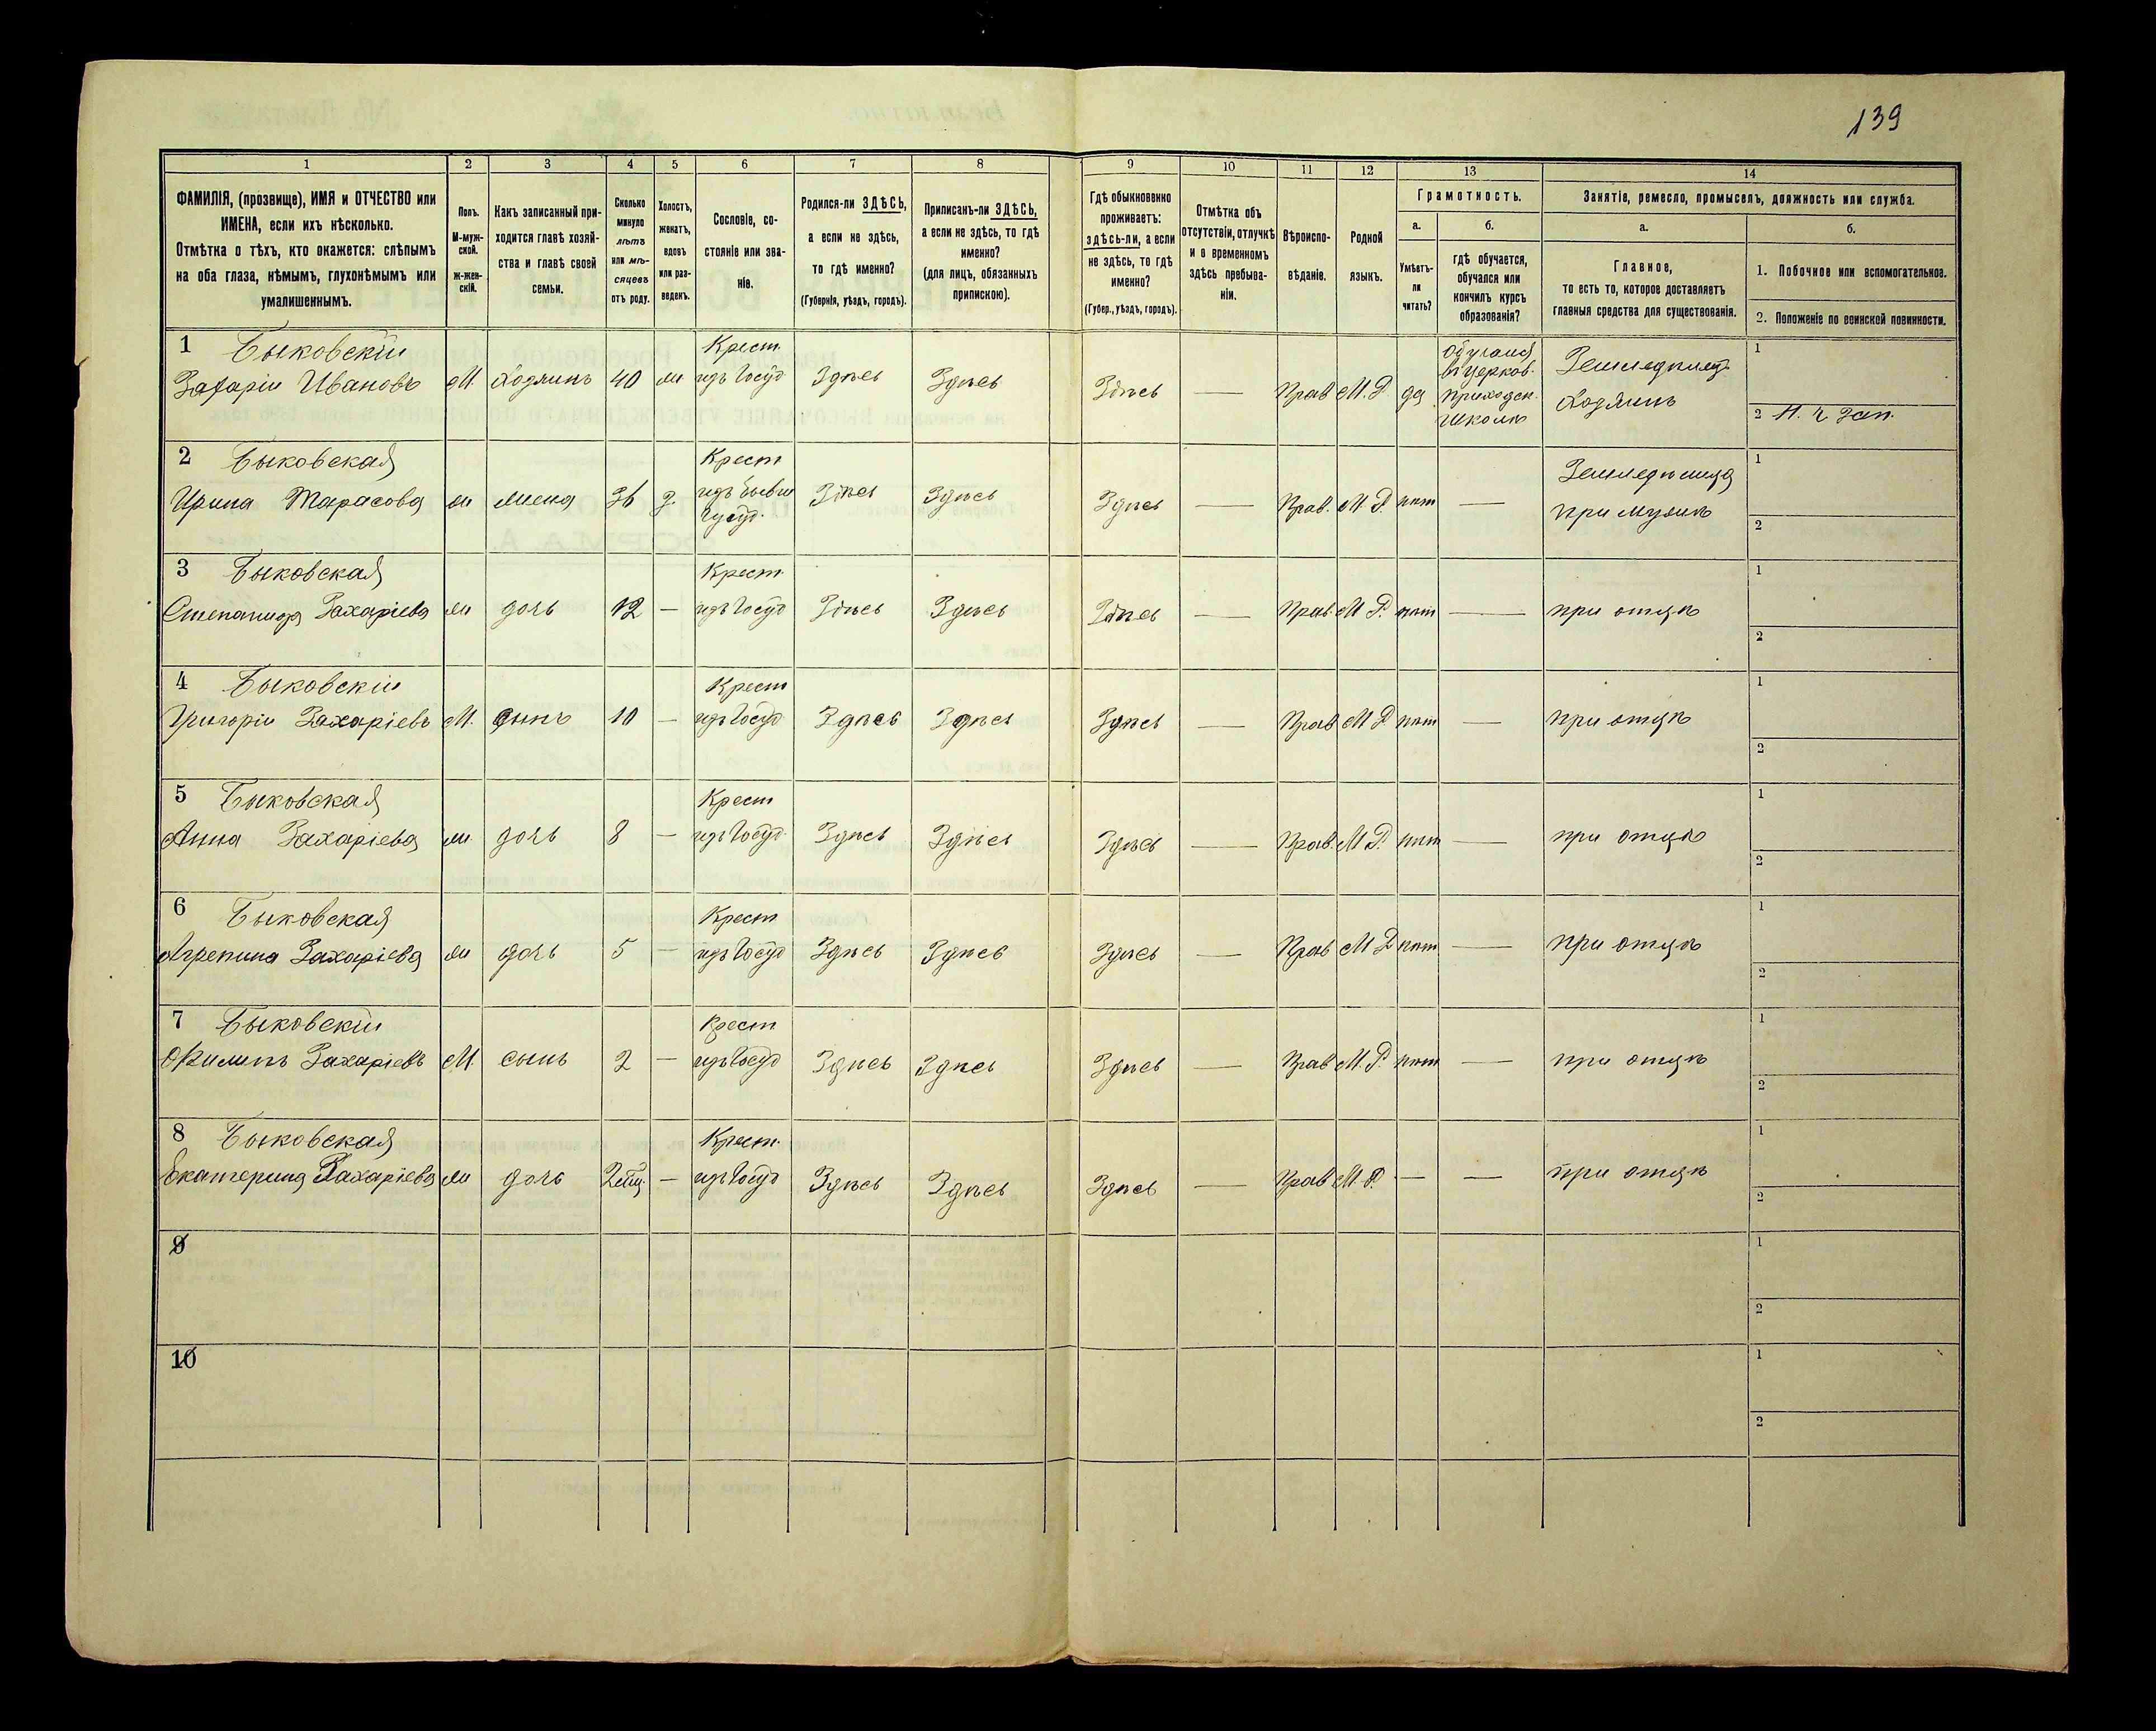 139
1 2 3 4 5 6 7 8 9 10 11 12 13 14
ФАМИЛІЯ, (прозвище), ИМЯ и ОТЧЕСТВО или
ИМЕНА, если ихъ нѣсколько.
Отмѣтка о тѣхъ, кто окажется: слѣпымъ
на оба глаза, нѣмымъ, глухонѣмымъ или
умалишеннымъ.
Полъ.
М-муж-
ской.
ж-жен-
скій.
Какъ записанный при-
ходится главѣ хозяй-
ства и главѣ своей
семьи.
Сколько
минуло
лѣтъ
или мѣ-
сяцевъ
отъ роду.
Холостъ,
женатъ,
вдовъ
или раз-
веденъ.
Сословіе, со-
стояніе или зва-
ніе.
Родился-ли ЗДѢСЬ,
а если не здѣсь,
то гдѣ именно?
(Губернія, уѣздъ, городъ).
Приписанъ-ли ЗДѢСЬ,
а если не здѣсь, то гдѣ
именно?
(для лицъ, обязанныхъ
припискою).
Гдѣ обыкновенно
проживаетъ:
здѣсь-ли, а если
не здѣсь, то гдѣ
именно?
(Губер., уѣздъ, городъ).
Отмѣтка объ
отсутствіи, отлучкѣ
и о временномъ
здѣсь пребыва-
ніи.
Вѣроиспо-
вѣданіе.
Родной
языкъ.
Грамотность.
а.
Умѣетъ-
ли
читать?
б.
гдѣ обучается,
обучался или
кончилъ курсъ
образованія?
Занятіе, ремесло, промыселъ, должность или служба.
а.
Главное,
то есть то, которое доставляетъ
главныя средства для существованія.
б.
1. Побочное или вспомогательное.
2. Положеніе по воинской повинности.
1 Быковскій Крест обучался 1
въ церков. Земледѣлецъ
Захарій Ивановъ М. Хозяинъ 40 ж изъ Госуд Здѣсь Здѣсь Здѣсь — Прав М.Р. да приходск. Хозяинъ
школѣ 2 Н. ч. зап.
2 Быковская Крест Земледѣлица 1
Ирина Тарасова ж жена 36 з. изъ бывш Здѣсь Здѣсь Здѣсь — Прав. М.Р. нѣт — при мужѣ
Госуд. 2
3 Быковская Крест 1
Степанида Захаріева ж дочь 12 — изъ Госуд Здѣсь Здѣсь Здѣсь — Прав. М Р. нѣт — при отцѣ 2
4 Быковскій Крест 1
Григорій Захаріевъ М. сынъ 10 — изъ Госуд Здѣсь Здѣсь Здѣсь — Прав М Р нѣт — при отцѣ 2
5 Быковская Крест 1
Анна Захаріева ж. дочь 8 — изъ Госуд. Здѣсь Здѣсь Здѣсь — Прав. М Р. нѣт — при отцѣ 2
6 Быковская Крест 1
Агрепина Захаріева ж дочь 5 — изъ Госуд Здѣсь Здѣсь Здѣсь — Прав М Р нѣт — при отцѣ 2
7 Быковскій Крест 1
Филипъ Захаріевъ М. сынъ 2 — изъ Госуд Здѣсь Здѣсь Здѣсь — Прав М. Р. нѣт — при отцѣ 2
8 Быковская Крест. 1
Екатерина Захаріева ж дочь — изъ Госуд Здѣсь Здѣсь Здѣсь — Прав М. Р. — — при отцѣ 2
9 1
2
10 1
2